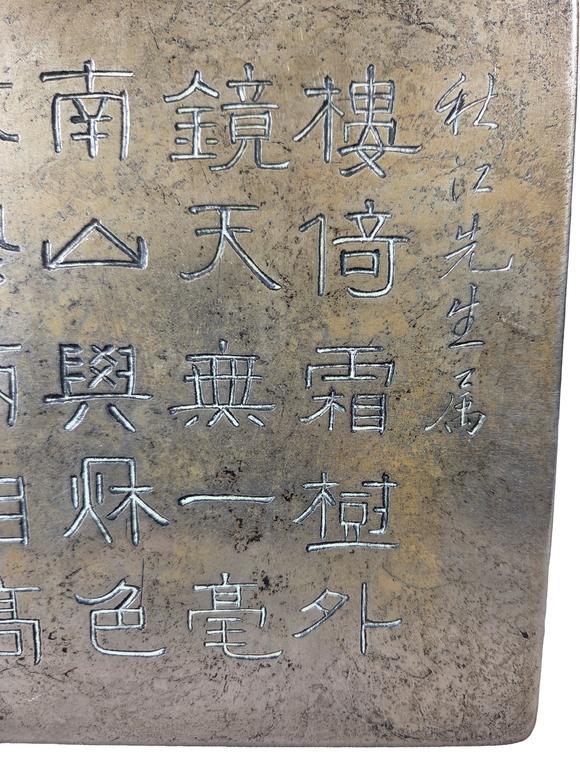 秋江先生属
樓倚霜樹外
鏡天無一毫
南山與秌色
髙